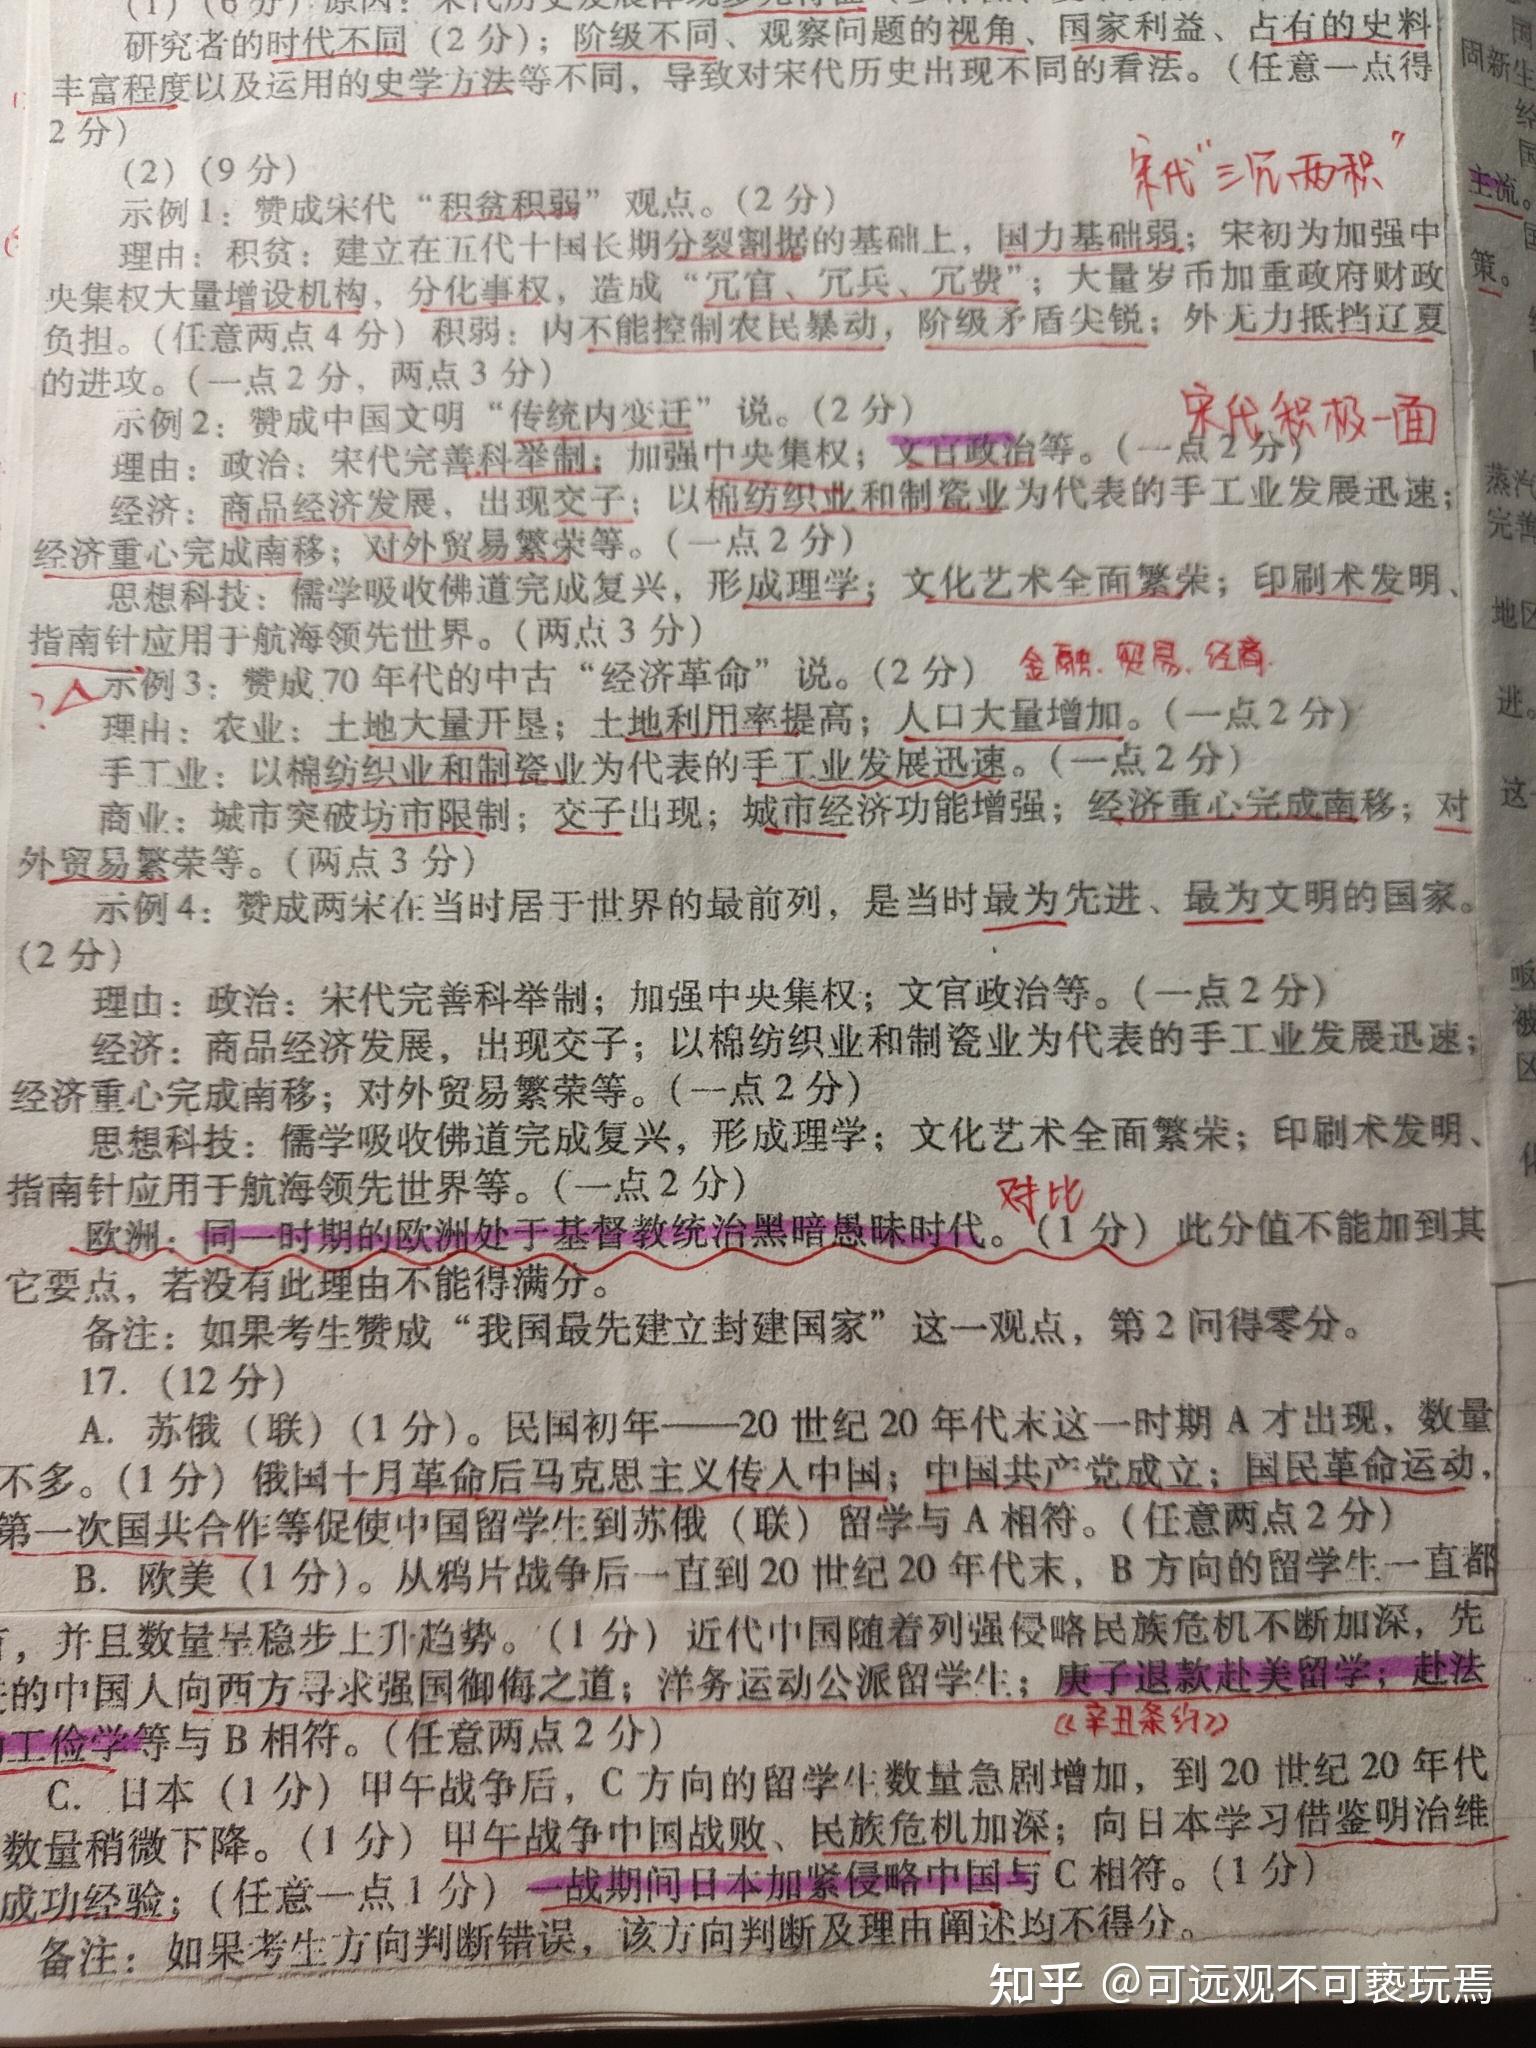 研究者的时代不同（2分）；阶级不同、观察问题的视角、国家利益、占有的史料
丰富程度以及运用的史学方法等不同，导致对宋代历史出现不同的看法。（任意一点得
2分）
（2）（9分）
宋代“三冗两积”
示例1：赞成宋代“积贫积弱”观点。（2分）
理由：积贫：建立在五代十国长期分裂割据的基础上，国力基础弱；宋初为加强中
央集权大量增设机构，分化事权，造成“冗官、冗兵、冗费”；大量岁币加重政府财政
负担。（任意两点4分）积弱：内不能控制农民暴动，阶级矛盾尖锐；外无力抵挡辽夏
的进攻。（一点2分，两点3分）
宋代积极一面
示例2：赞成中国文明“传统内变迁”说。（2分）
理由：政治：宋代完善科举制；加强中央集权；文官政治等。（一点2分）
经济：商品经济发展，出现交子；以棉纺织业和制瓷业为代表的手工业发展迅速；
经济重心完成南移；对外贸易繁荣等。（一点2分）
思想科技：儒学吸收佛道完成复兴，形成理学；文化艺术全面繁荣；印刷术发明、
指南针应用于航海领先世界。（两点3分）
金融、贸易、经商.
?△示例3：赞成70年代的中古“经济革命”说。（2分）
理由：农业：土地大量开垦；土地利用率提高；人口大量增加。（一点2分）
手工业：以棉纺织业和制瓷业为代表的手工业发展迅速。（一点2分）
商业：城市突破坊市限制；交子出现；城市经济功能增强；经济重心完成南移；对
外贸易繁荣等。（两点3分）
示例4：赞成两宋在当时居于世界的最前列，是当时最为先进、最为文明的国家。
（2分）
理由：政治：宋代完善科举制；加强中央集权；文官政治等。（一点2分）
经济：商品经济发展，出现交子；以棉纺织业和制瓷业为代表的手工业发展迅速；
经济重心完成南移；对外贸易繁荣等。（一点2分）
思想科技：儒学吸收佛道完成复兴，形成理学；文化艺术全面繁荣；印刷术发明、
指南针应用于航海领先世界等。（一点2分）
对比
欧洲：同一时期的欧洲处于基督教统治黑暗愚昧时代。（1分）此分值不能加到其
它要点，若没有此理由不能得满分。
备注：如果考生赞成“我国最先建立封建国家”这一观点，第2问得零分。
17.（12分）
A. 苏俄（联）（1分）。民国初年——20世纪20年代末这一时期A才出现，数量
不多。（1分）俄国十月革命后马克思主义传入中国；中国共产党成立；国民革命运动，
第一次国共合作等促使中国留学生到苏俄（联）留学与A相符。（任意两点2分）
B. 欧美（1分）。从鸦片战争后一直到20世纪20年代末，B方向的留学生一直都
，并且数量呈稳步上升趋势。（1分）近代中国随着列强侵略民族危机不断加深，先
的中国人向西方寻求强国御侮之道；洋务运动公派留学生；庚子退款赴美留学；赴法
工俭学等与B相符。（任意两点2分）
《辛丑条约》
C. 日本（1分）甲午战争后，C方向的留学生数量急剧增加，到20世纪20年代
数量稍微下降。（1分）甲午战争中国战败、民族危机加深；向日本学习借鉴明治维
成功经验；（任意一点1分）一战期间日本加紧侵略中国与C相符。（1分）
备注：如果考生方向判断错误，该方向判断及理由阐述均不得分。
主流。
策。
知乎 @可远观不可亵玩焉